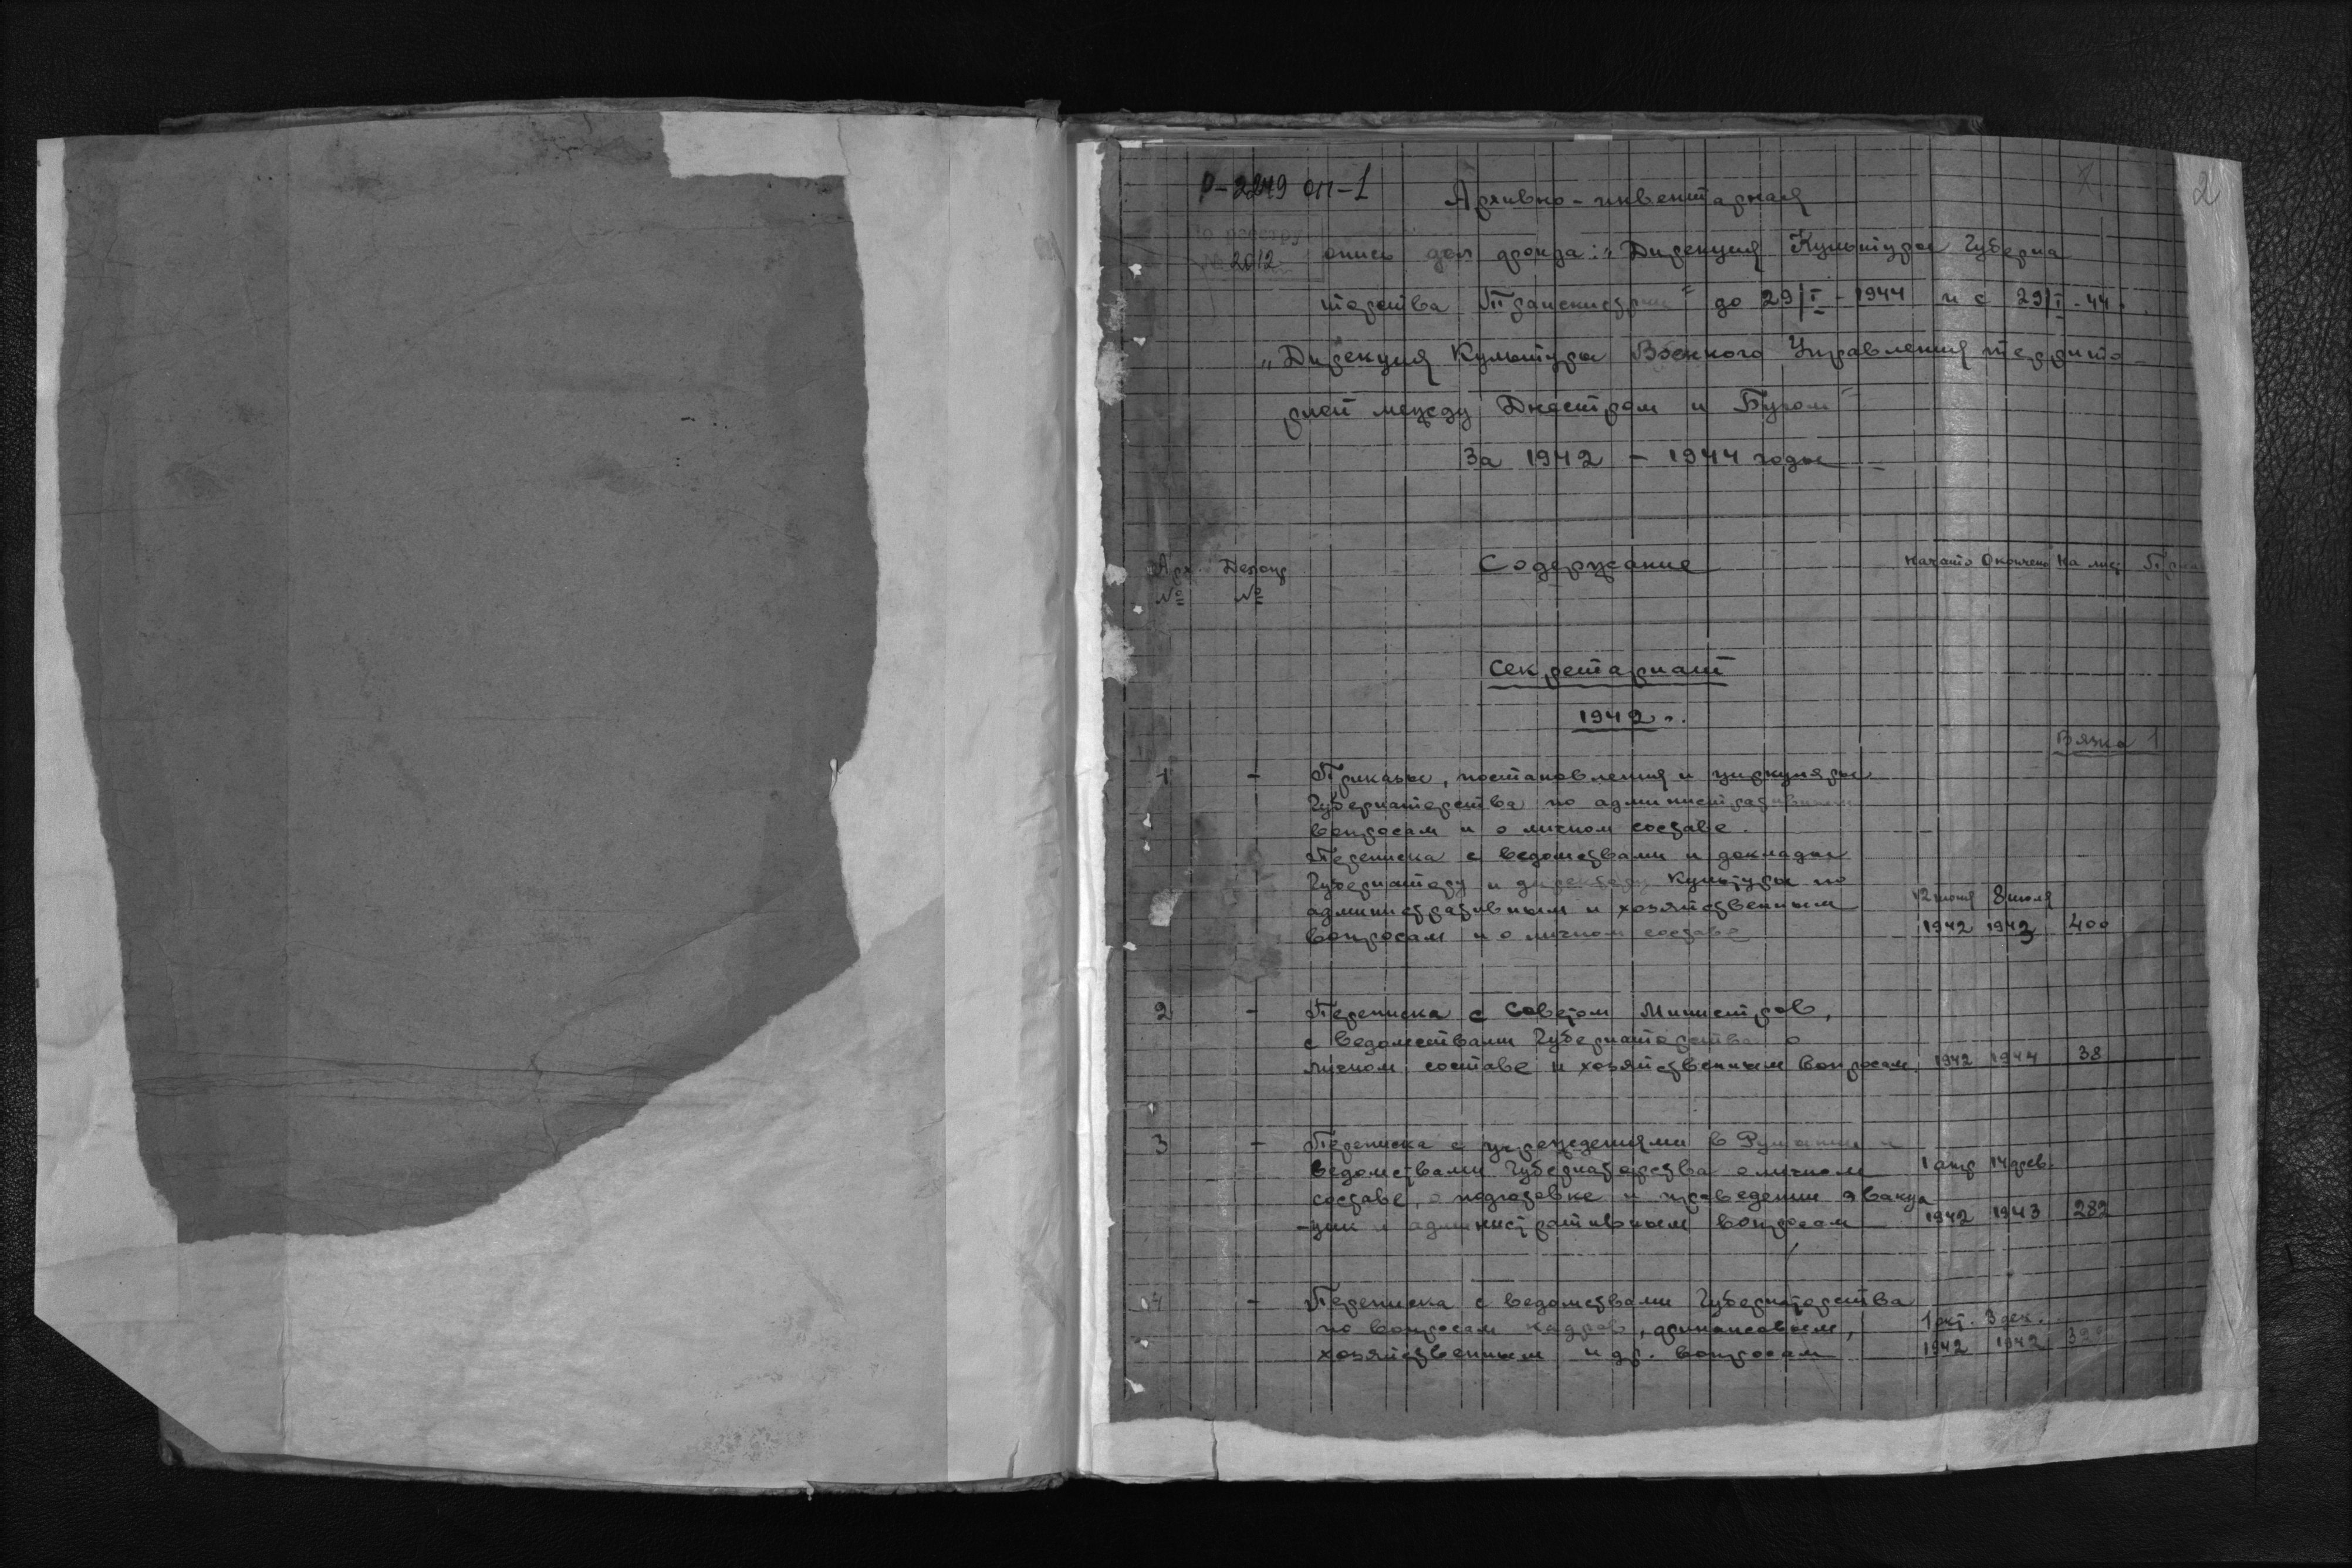 Р-2249 оп-1
2
Архивно-инвентарная
2012
опись дел фонда: "Дирекция Культуры Губерна
торства Транснистрии" до 29/I-1944 и с 29/I-44.
"Дирекция Культуры Военного Управления террито-
рией между Днестром и Бугом"
За 1942 - 1944 годы
Арх. №
№
Содержание
Начато Окончено На лис
Секретариат
1942 г.
Вязка 1
1 - Приказы, постановления и циркуляры
Губернаторства по административным
вопросам и о личном составе.
Переписка с ведомствами и доклады
Губернатору и директору Культуры по
административным и хозяйственным 12 июня 8 июля
вопросам и о личном составе 1942 1943 400
2 - Переписка с Советом Министров,
с ведомствами Губернаторства о
личном составе и хозяйственным вопросам. 1942 1944 38
3 - Переписка с учреждениями в Румынии и
ведомствами Губернаторства о личном 1 апр 14 фев.
составе, о подготовке и проведении эвакуа
-ции и административным вопросам 1942 1943 282
4 - Переписка с ведомствами Губернаторства
по вопросам кадров, финансовым, 1 окт. 3 дек.
хозяйственным и др. вопросам 1942 1942